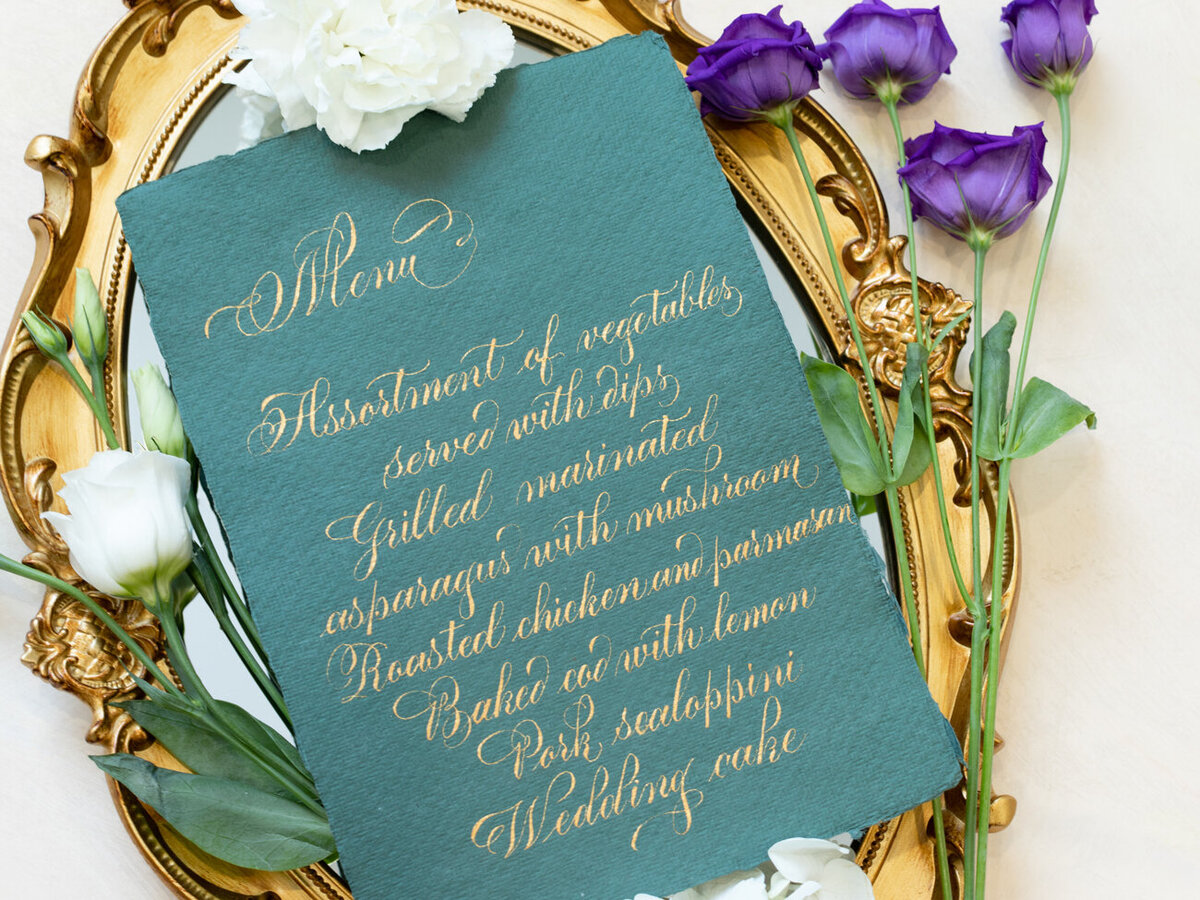 Menu
Assortment of vegetables
served with dips
Grilled marinated
asparagus with mushroom
Roasted chicken and parmasan
Baked cod with lemon
Pork scaloppini
Wedding cake